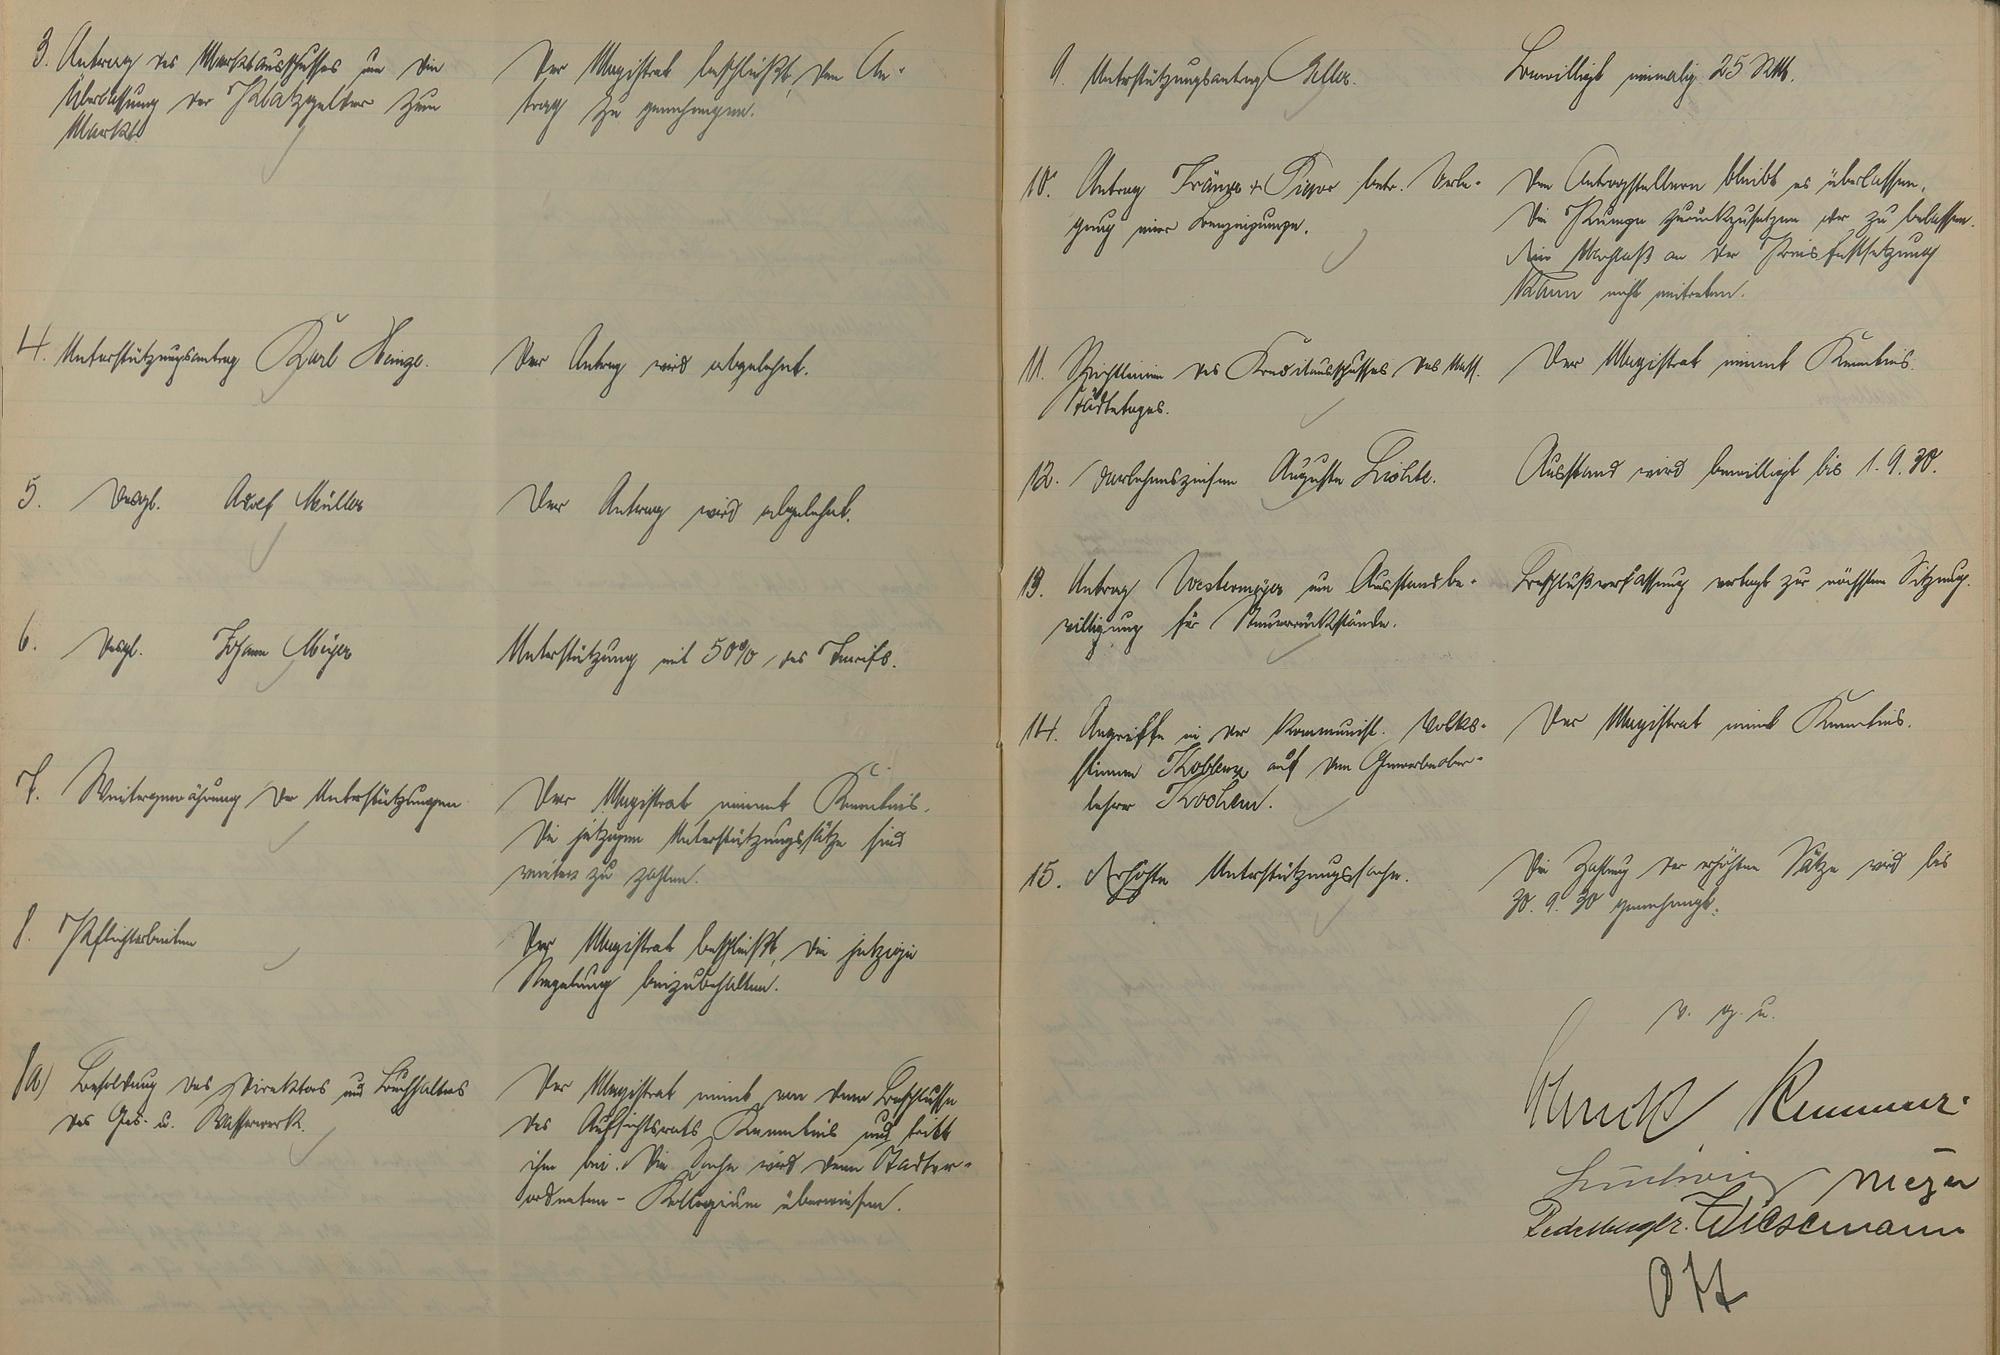 3. Antrag des Marktausschusses um die
Überlassung der Platzgelder zum
Markt.
Der Magistrat beschließt, den An-
trag zu genehmigen.
4. Unterstützungsantrag Karl Heinze.
Der Antrag wird abgelehnt.
5. Desgl. Adolf Müller
Der Antrag wird abgelehnt.
6. Desgl. Johann Meyer
Unterstützung mit 50% des Tarifs.
7. Weitergewährung der Unterstützungen
Der Magistrat nimmt Kenntnis.
Die jetzigen Unterstützungssätze sind
weiter zu zahlen.
8. Pflichtarbeiten
Der Magistrat beschließt, die jetzige
Regelung beizubehalten.
8a) Besoldung des Direktors und Buchhalters
des Gas- u. Wasserwerk.
Der Magistrat nimmt von dem Beschlusse
des Aufsichtsrats Kenntnis und tritt
ihm bei. Die Sache wird dem Stadtver-
ordneten-Kollegium überwiesen.
9. Unterstützungsantrag
Bewilligt einmalig 25 RM.
10. Antrag betr. Verle-
gung einer Benzinpumpe.
Den Antragstellern bleibt es überlassen,
die Pumpe zurückzusetzen oder zu belassen.
Ein Nachlaß an der Preisfestsetzung
kann nicht eintreten.
11. Richtlinien des Kreditausschusses des
Städtetages.
Der Magistrat nimmt Kenntnis.
12. Darlehnszinsen Auguste
Ausstand wird bewilligt bis 1.9.30.
13. Antrag Westermeyer um Ausstandbe-
willigung für Steuerrückstände.
Beschlußverfassung vertagt zur nächsten Sitzung.
14. Angriffe in der Kommunist. Volks-
stimme Koblenz auf den Gewerbeober-
lehrer Kochem.
Der Magistrat nimmt Kenntnis.
15. Erhöhte Unterstützungssache.
Die Zahlung der erhöhten Sätze wird bis
30.9.30 genehmigt.
v. g. u.
Ludwig Meyer
Wiesemann
Ott